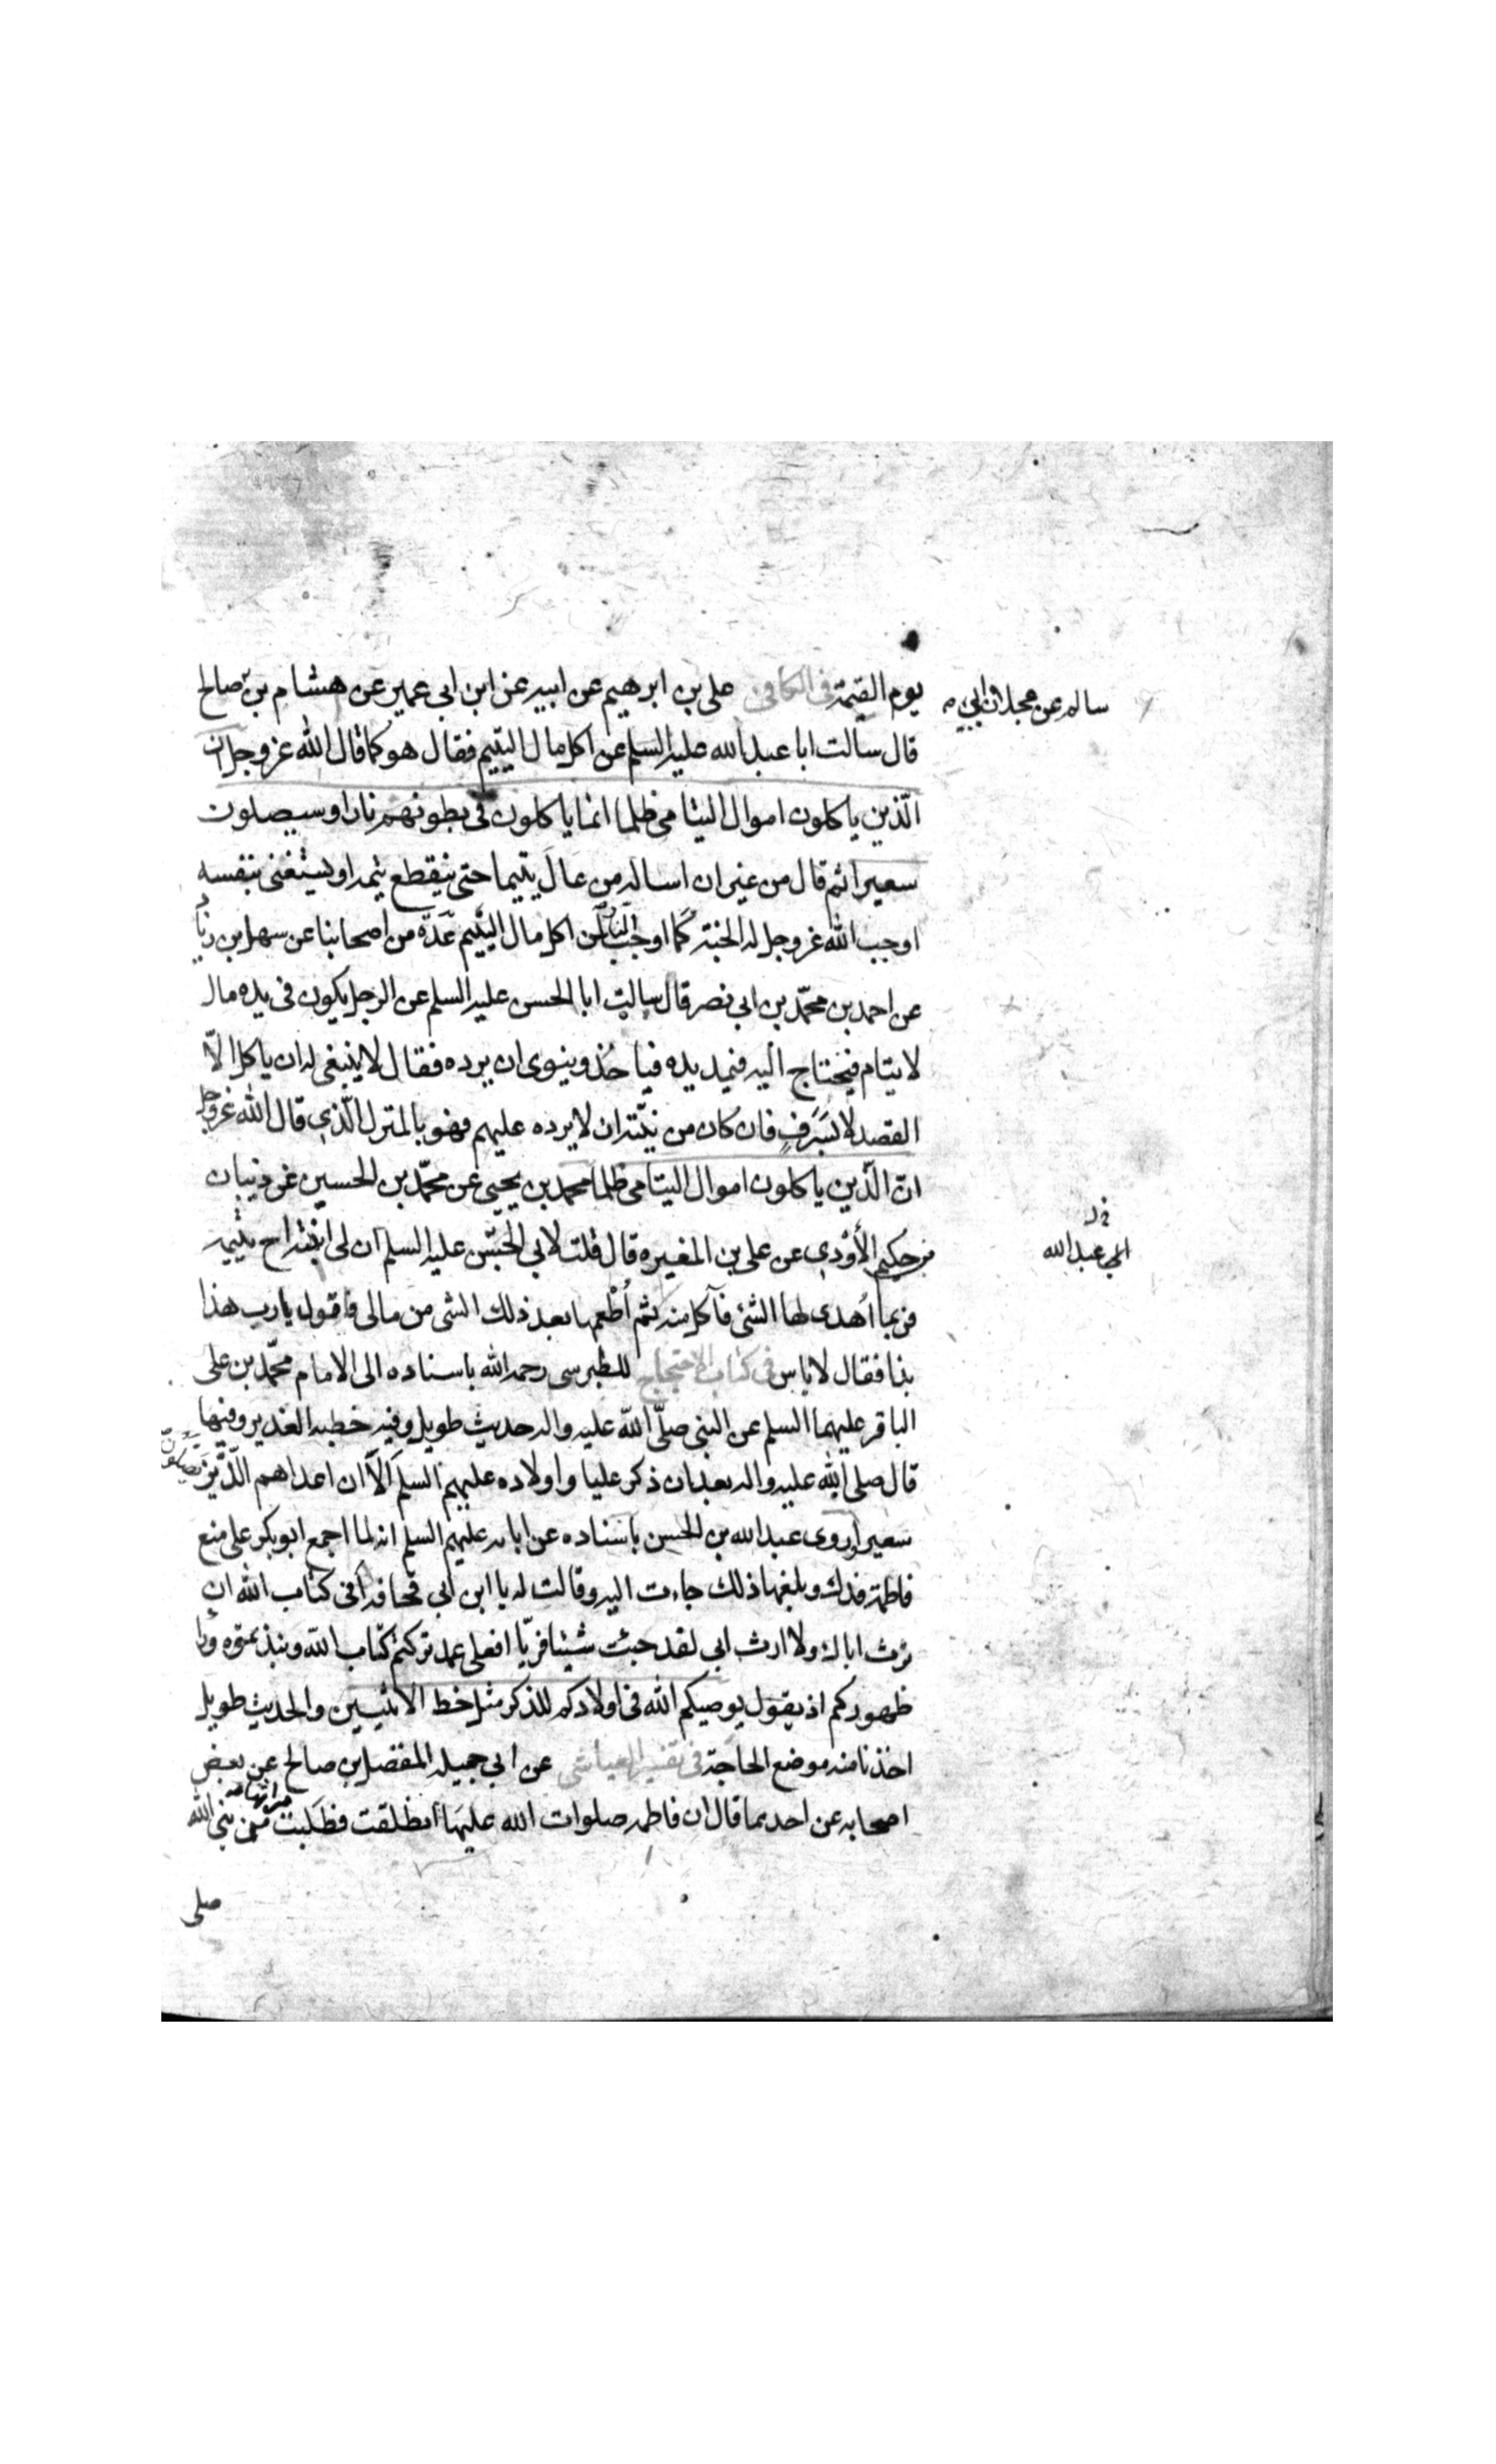 يوم القيمة فى الكافى على بن ابرهيم عن ابيه عن ابن ابى عمير عن هشام بن صالح
سالم عن عجلان ابى
قال سالت ابا عبد الله عليه السلم عن اكل مال اليتيم فقال هو كما قال الله عز وجل ان
الّذين ياكلون اموال اليتامى ظلما انما ياكلون فى بطونهم نارا وسيصلون
سعيرا ثم قال من غير ان اساله من عال يتيما حتى ينقطع يتمه او يستغنى بنفسه
اوجب الله عز وجل له الجنة كما اوجب النار لمن اكل مال اليتيم عدّة من اصحابنا عن سهل بن زياد
عن احمد بن محمّد بن ابى نصر قال سالت ابا الحسن عليه السلم عن الرجل يكون فى يده مال
لايتام فيحتاج اليه فيمد يده فياخذ وينوى ان يرده فقال لا ينبغى له ان ياكل الّا
القصد لا يسرف فان كان من نيّته ان لا يرده عليهم فهو بالمنزل الّذى قال الله عز وجل
انّ الّذين ياكلون اموال اليتامى ظلما محمد بن يحيى عن محمّد بن الحسين عن ذبيان
بن حكيم الأودى عن على بن المغيره قال قلت لابى الحسن عليه السلم ان لى ابنة اخ يتيمه
ابى عبد الله
فربما اُهدى لها الشئ فآكل منه ثم اُطعمها بعد ذلك الشى من مالى فاقول يا رب هذا
بذا فقال لا باس فى كتاب الاحتجاج للطبرسى رحمه الله باسناده الى الامام محمّد بن على
الباقر عليهما السلم عن النبى صلّى اللّه عليه واله حديث طويل وفيه خطبه الغدير وفيها
قال صلى الله عليه واله بعد ان ذكر عليا واولاده عليهم السلم اَلا ان اعداهم الّذين يصلون
سعيرا وروى عبد الله بن الحسن باسناده عن ابائه عليهم السلم انه لما اجمع ابو بكر على منع
فاطمة فدك وبلغها ذلك جاءت اليه وقالت له يا ابن ابى قحافه اَفى كتاب الله ان
ترث اباك ولا ارث ابى لقد جئت شيئا فريّا افعلى عمد تركتم كتاب اللّه ونبذتموه وراء
ظهوركم اذ يقول يوصيكم الله فى اولادكم للذكر مثل حظ الانثيين والحديث طويل
اخذنا منه موضع الحاجة فى تفسير العياشى عن ابى جميله المفضل بن صالح عن بعض
اصحابه عن احدهما قال ان فاطمه صلوات الله عليها انطلقت فطلبت ميراثها من نبى الله
صلى